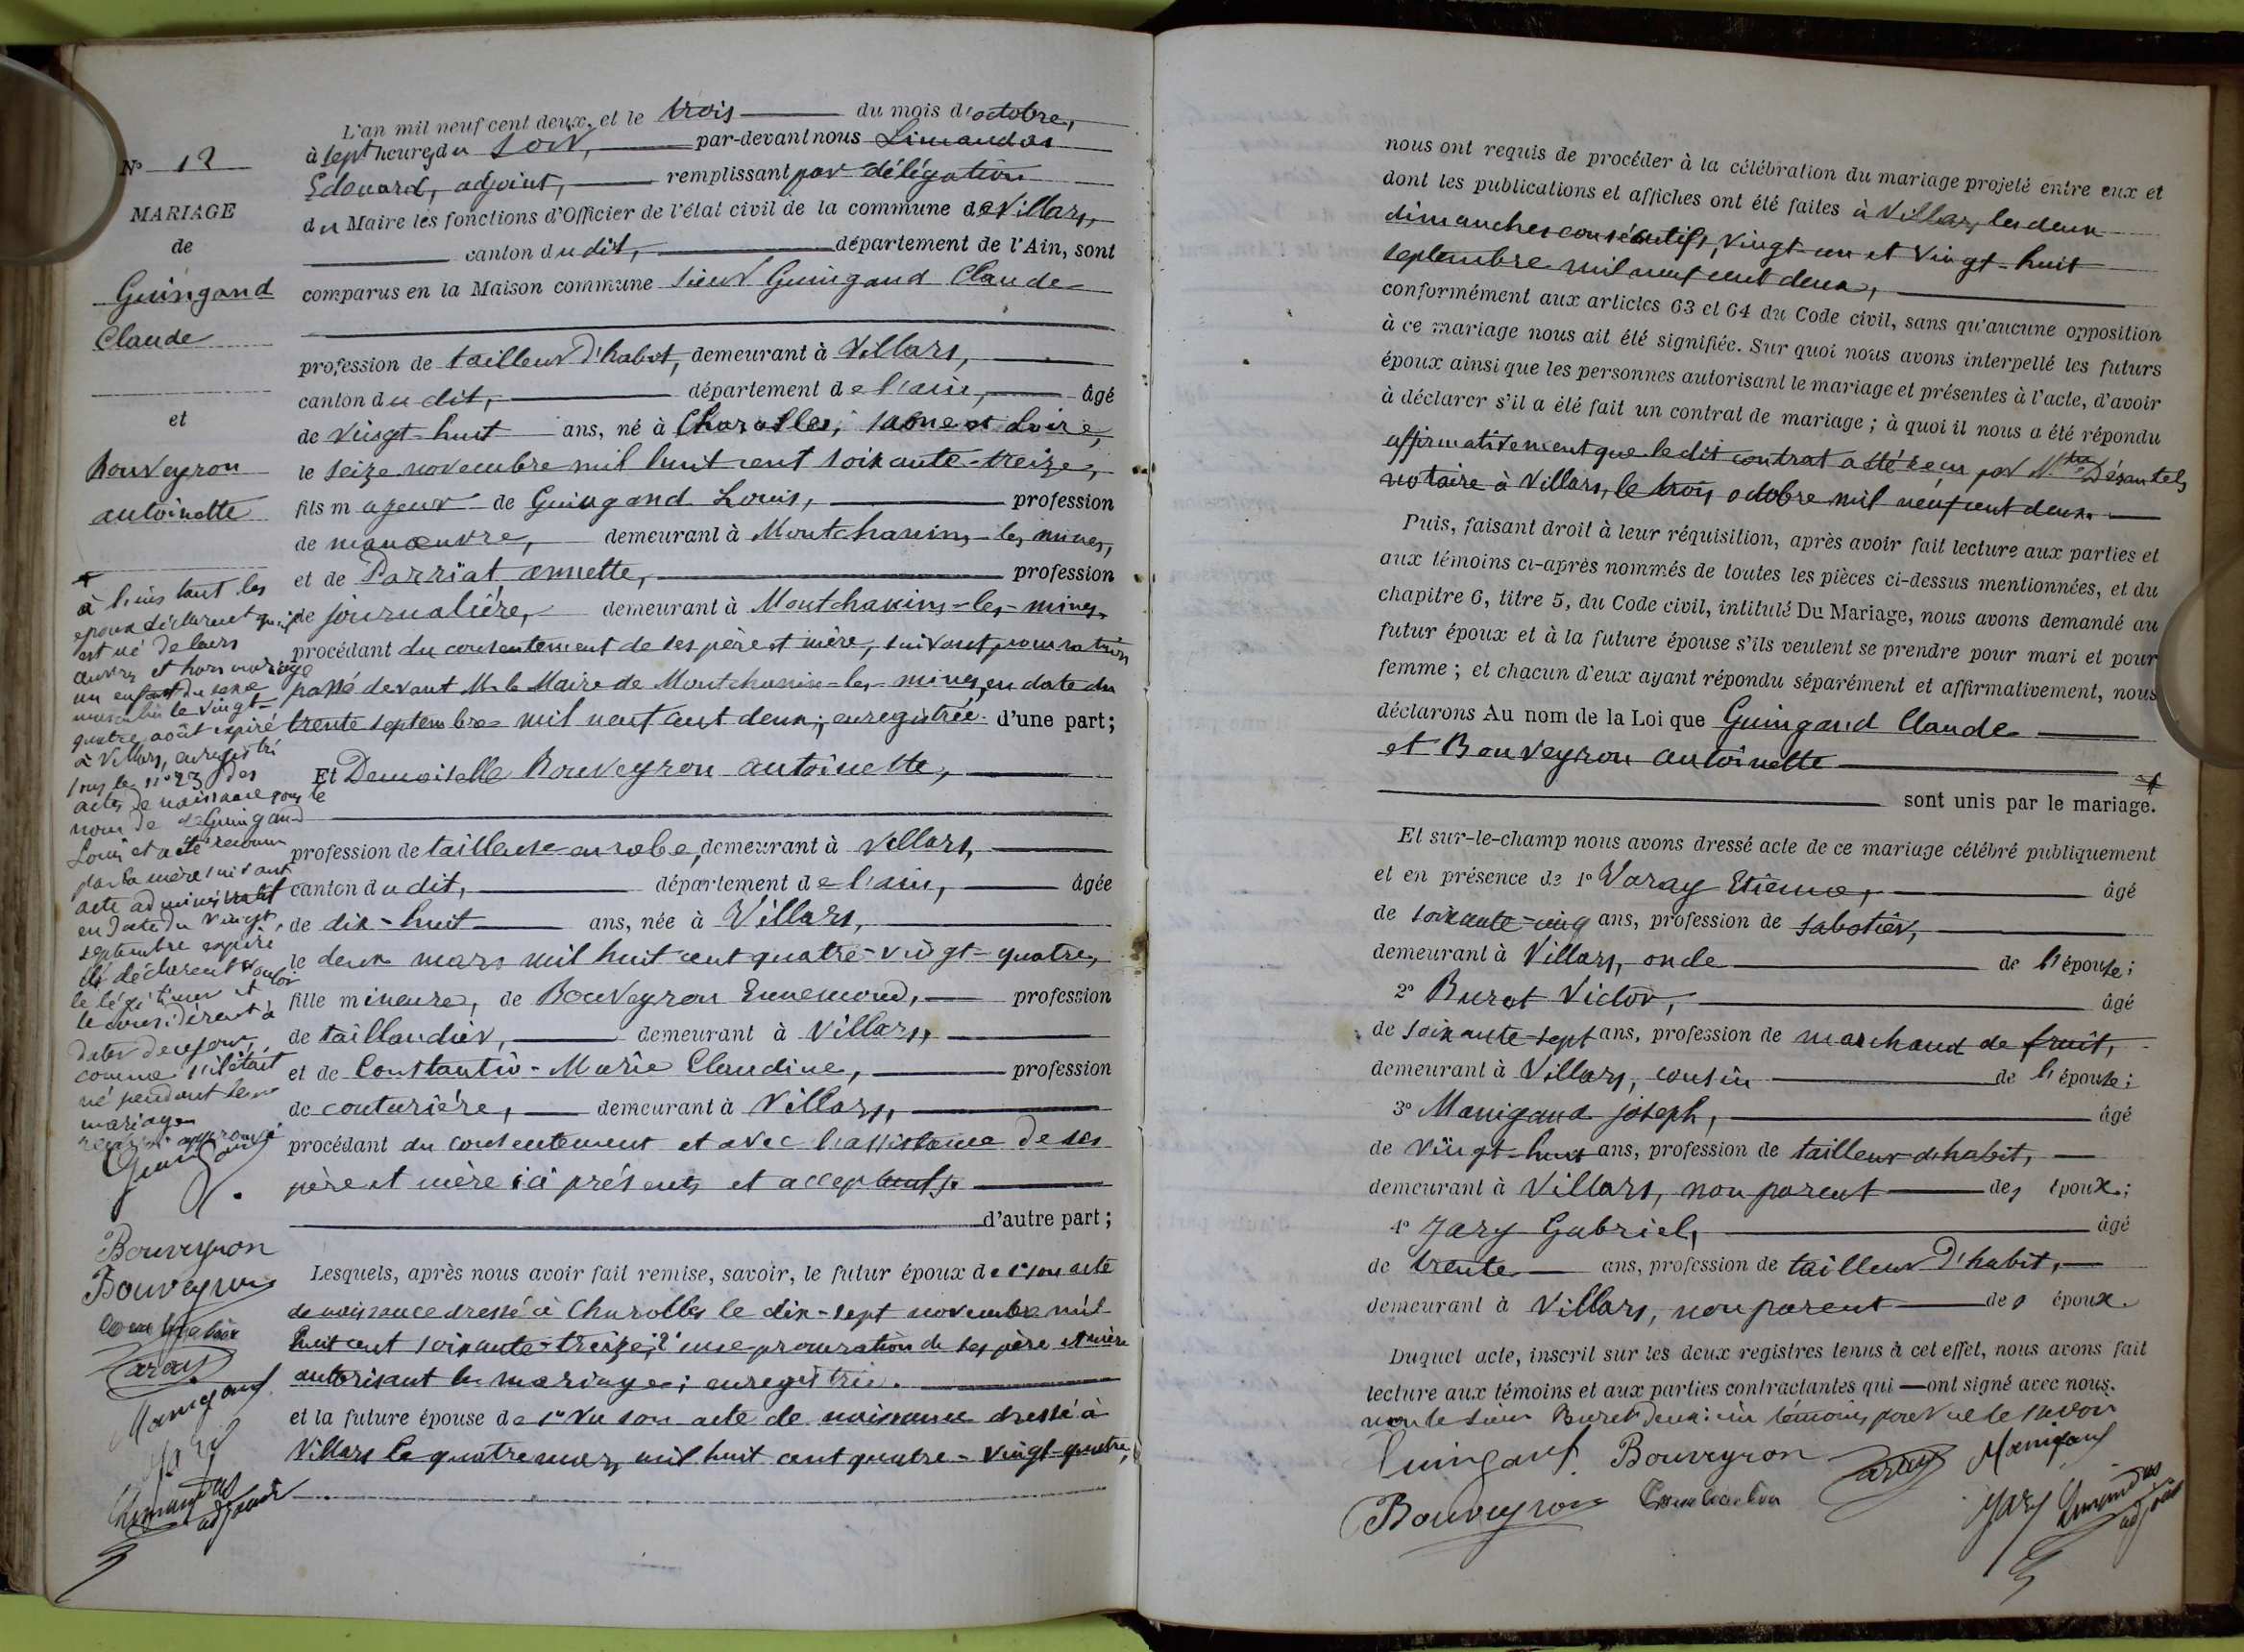 N° 12
MARIAGE
de
Guingand
Claude
et
Bouveyron
antoinette
L'an mil neuf cent deux, et le trois du mois d'octobre,
à sept heures du soir, par-devant nous Limandas
Edouard, adjoint, remplissant par délégation
du Maire les fonctions d'Officier de l'état civil de la commune de Villars,
canton du dit, département de l'Ain, sont
comparus en la Maison commune sieur Guingand Claude
profession de tailleur d'habit, demeurant à Villars,
canton du dit, département de l'ain, âgé
de vingt-huit ans, né à Charolles, saone et Loire,
le seize novembre mil huit cent soixante-treize,
fils majeur de Guingand Louis, profession
de manœuvre, demeurant à Montchanin-les mines,
et de Parriat annette, profession
de journalière, demeurant à Montchanin-les-mines,
procédant du consentement de ses père et mère, suivant procuration
passé devant M. le Maire de Montchanin-les-mines, en date du
trente septembre mil neuf cent deux, enregistrée. d'une part;
Et Demoiselle Bouveyron antoinette,
profession de tailleuse en robe, demeurant à Villars,
canton du dit, département de l'ain, âgée
de dix-huit ans, née à Villars,
le deux mars mil huit cent quatre-vingt-quatre,
fille mineure, de Bouveyron Ennemond, profession
de taillandier, demeurant à Villars,
et de Constantin-Marie Claudine, profession
de couturière, demeurant à Villars,
procédant du consentement et avec l'assistance de ses
père et mère ici présents et acceptants.
d'autre part;
Lesquels, après nous avoir fait remise, savoir, le futur époux de 1° son acte
de naissance dressé à Charolles le dix-sept novembre mil
huit cent soixante-treize; 2° une procuration de ses père et mère
autorisant le mariage; enregistrée.
et la future épouse de 1° du son acte de naissance dressé à
Villars le quatre mars mil huit cent quatre-vingt-quatre,
à l'instant les
époux déclarent qu'il
est né de leurs
œuvres et hors mariage
un enfant du sexe
masculin le vingt-
quatre août expiré
à Villars, enregistré
sous le n° 23 des
actes de naissance sous le
nom de Guingand
Louis et a été reconnu
par la mère suivant
acte administratif
en date du vingt
septembre expiré
ils déclarent vouloir
le légitimer et
le considèrent à
dater de ce jour,
comme s'il était
né pendant leur
mariage
Guingand
Bouveyron
Bouveyron
Constantin
Varay
Manigand
Jary
Limandas
adjoint
nous ont requis de procéder à la célébration du mariage projeté entre eux et
dont les publications et affiches ont été faites à Villars, les deux
dimanches consécutifs, vingt-un et vingt-huit
septembre mil neuf cent deux,
conformément aux articles 63 et 64 du Code civil, sans qu'aucune opposition
à ce mariage nous ait été signifiée. Sur quoi nous avons interpellé les futurs
époux ainsi que les personnes autorisant le mariage et présentes à l'acte, d'avoir
à déclarer s'il a été fait un contrat de mariage; à quoi il nous a été répondu
affirmativement que le dit contrat a été reçu par Mtre Désautels,
notaire à Villars, le trois octobre mil neuf cent deux.
Puis, faisant droit à leur réquisition, après avoir fait lecture aux parties et
aux témoins ci-après nommés de toutes les pièces ci-dessus mentionnées, et du
chapitre 6, titre 5, du Code civil, intitulé Du Mariage, nous avons demandé au
futur époux et à la future épouse s'ils veulent se prendre pour mari et pour
femme; et chacun d'eux ayant répondu séparément et affirmativement, nous
déclarons Au nom de la Loi que Guingand Claude
et Bouveyron antoinette
sont unis par le mariage.
Et sur-le-champ nous avons dressé acte de ce mariage célébré publiquement
et en présence de 1° Varay Etienne, âgé
de soixante-cinq ans, profession de sabotier,
demeurant à Villars, oncle de l'épouse;
2° Buret Victor, âgé
de soixante-sept ans, profession de marchand de fruit,
demeurant à Villars, cousin de l'épouse;
3° Manigand joseph, âgé
de vingt-huit ans, profession de tailleur d'habit,
demeurant à Villars, non parent des époux;
4° Jary Gabriel, âgé
de trente ans, profession de tailleur d'habit,
demeurant à Villars, non parent des époux.
Duquel acte, inscrit sur les deux registres tenus à cet effet, nous avons fait
lecture aux témoins et aux parties contractantes qui ont signé avec nous.
non le sieur Buret deuxième témoin pour ne le savoir
Guingand Bouveyron Varay Manigand
Bouveyron Constantin Jary Limandas
adjoint